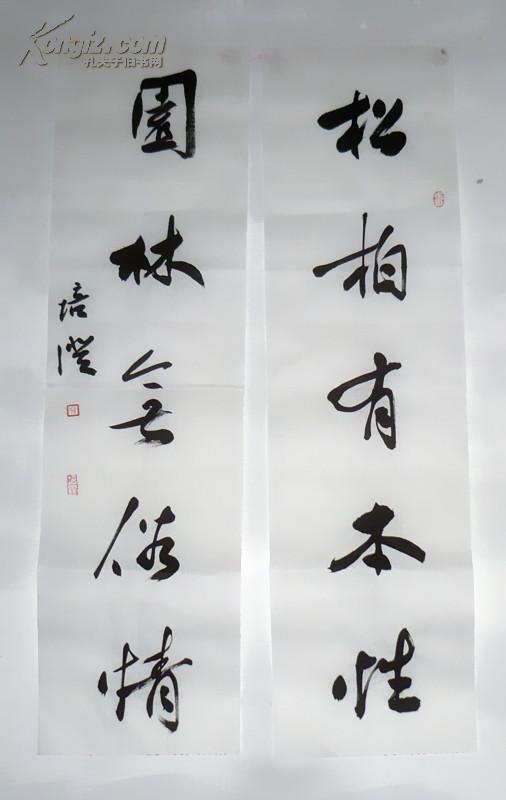 松柏有本性
園林無俗情
培澄
Kongfz.com
孔夫子旧书网